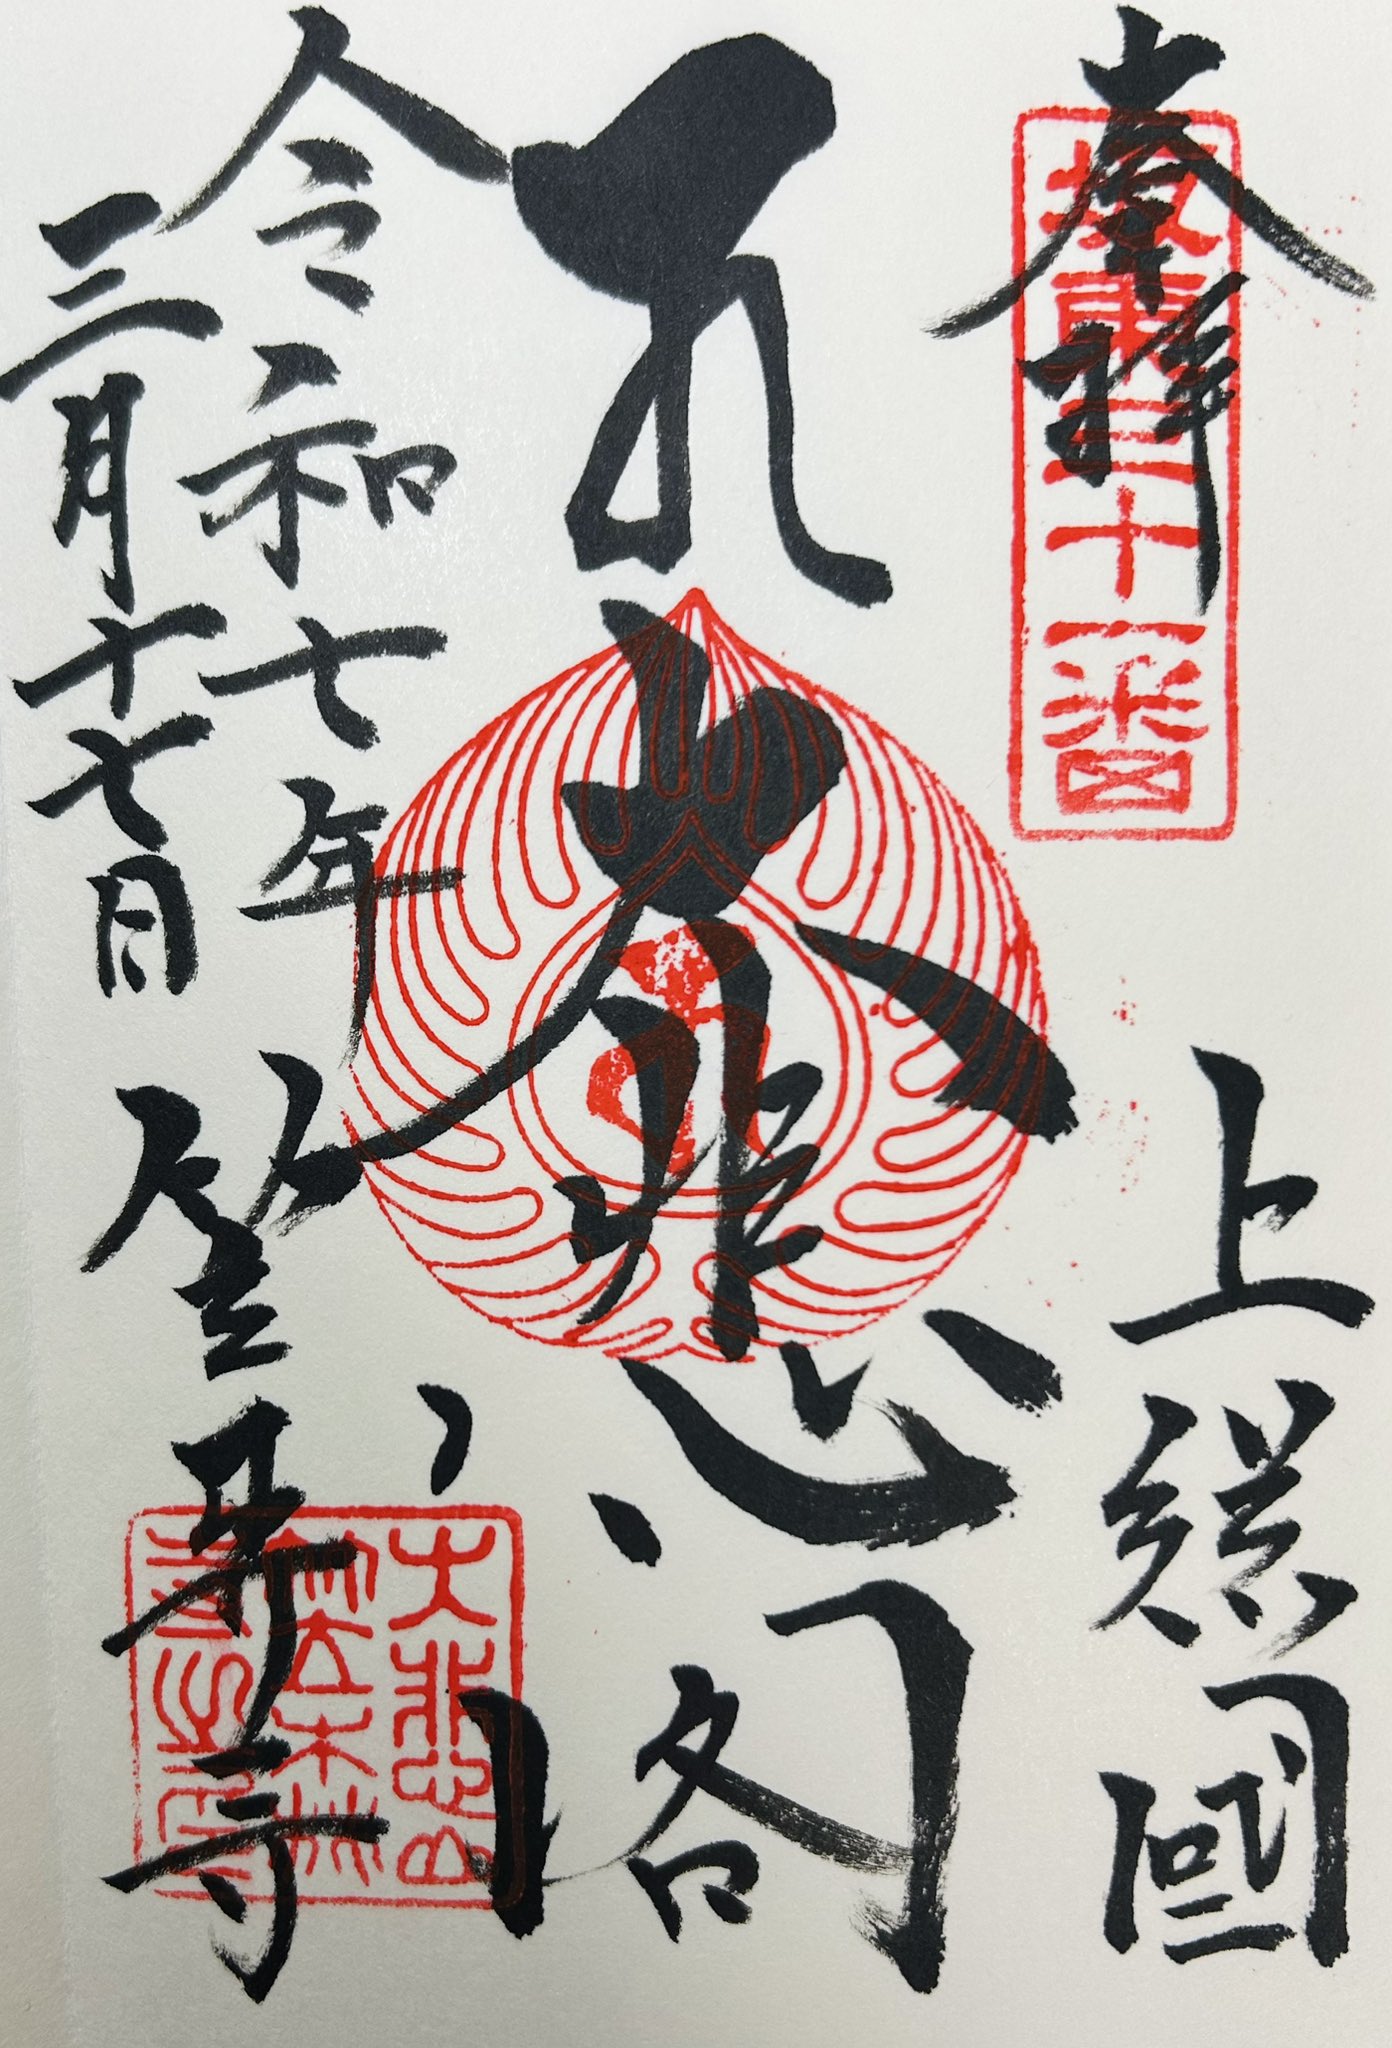 奉拝
坂東三十一番
上総國
大悲閣
令和七年
三月十七日
笠森寺
大悲山
笠森
寺之印